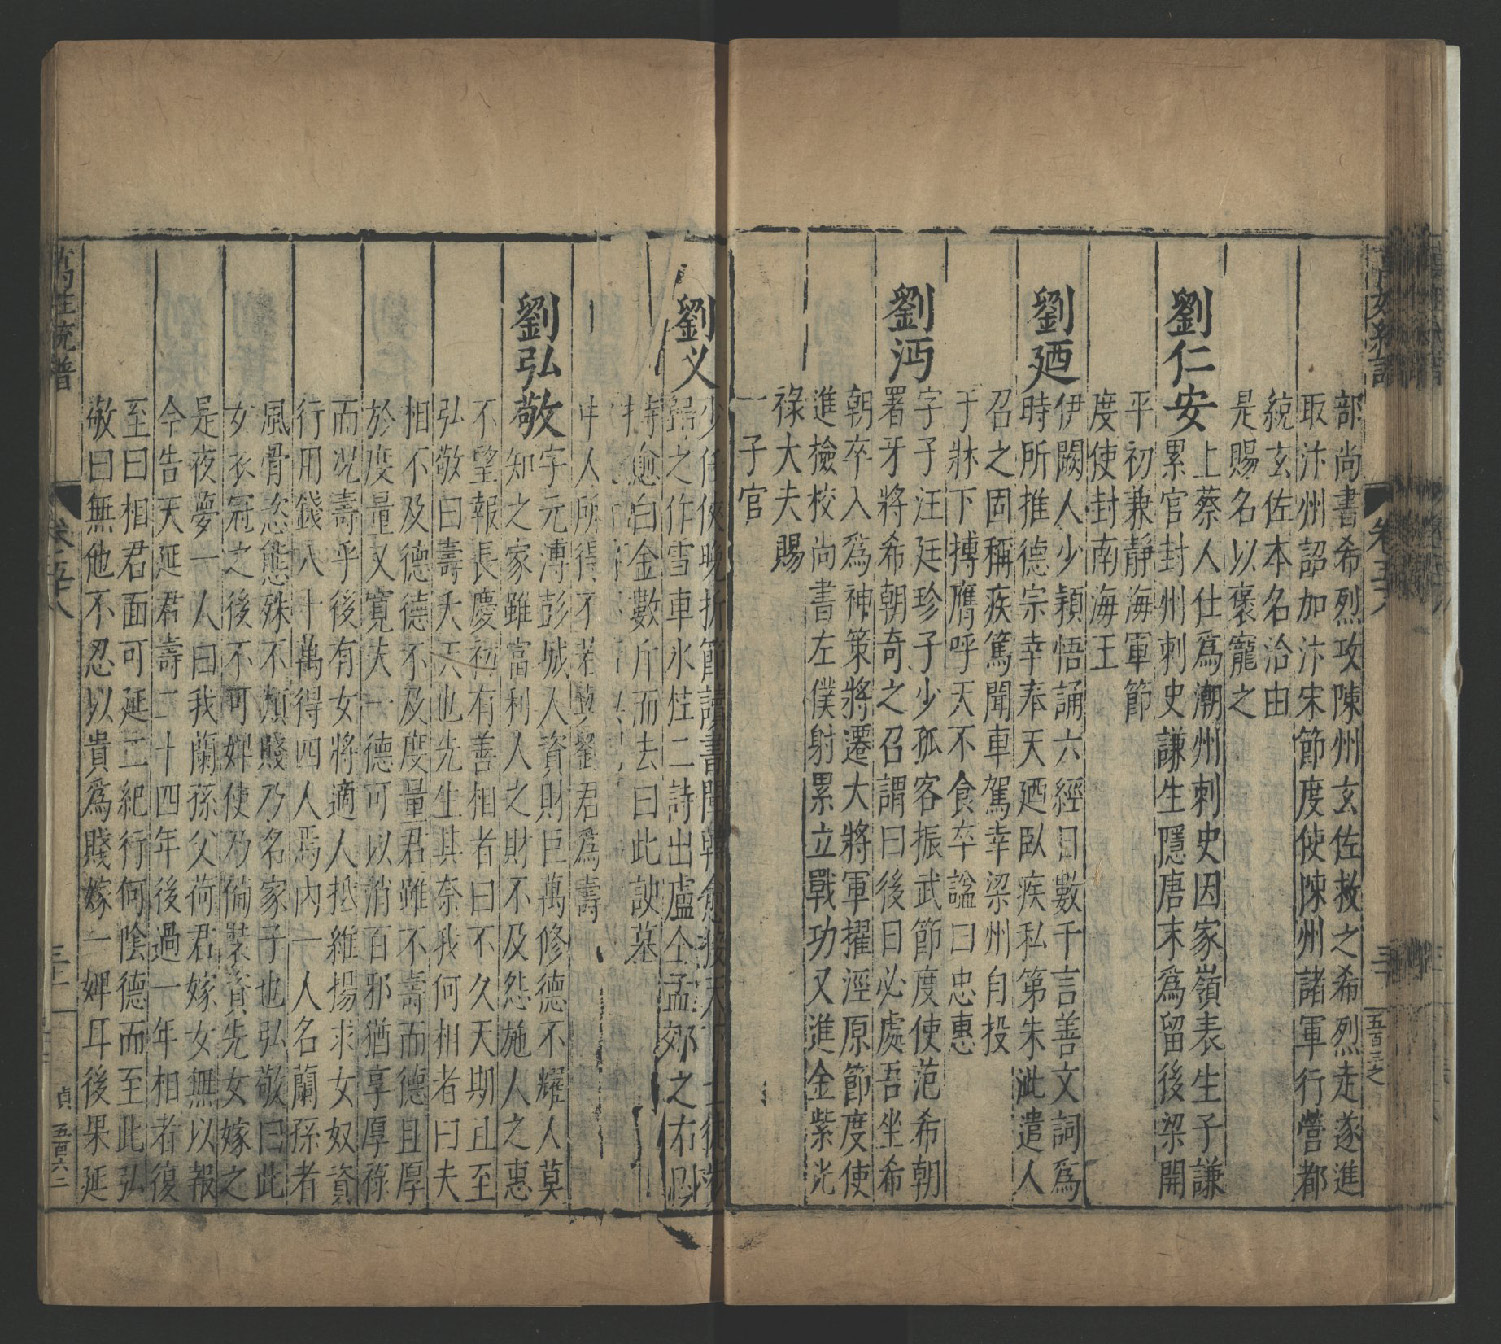 部尚書希烈攻陳州玄佐救之希烈走遂進
取汴州詔加汴宋節度使陳州諸軍行營都
統玄佐本名洽由
是賜名以褒寵之
劉仁安
上蔡人仕爲潮州刺史因家嶺表生子謙
累官封州刺史謙生隱唐末爲留後梁開
平初兼靜海軍節
度使封南海王
劉廼
伊闕人少穎悟誦六經日數千言善文詞爲
時所推德宗幸奉天廼臥疾私第朱泚遣人
召之固稱疾篤聞車駕幸梁州自投
于牀下搏膺呼天不食卒諡曰忠惠
劉沔
字子汪廷珍子少孤客振武節度使范希朝
署牙將希朝奇之召謂曰後日必處吾坐希
朝卒入爲神策將遷大將軍擢涇原節度使
進檢校尚書左僕射累立戰功又進金紫光
祿大夫賜
一子官
劉义
少任俠晚折節讀書聞韓愈接天下士徒步
歸之作雪車氷柱二詩出盧仝孟郊之右
持愈白金數斤而去曰此諛墓
中人所得不若與劉君爲壽
劉弘敬
字元溥彭城人資財巨萬修德不耀人莫
知之家雖富利人之財不及怨施人之惠
不望報長慶初有善相者曰不久天期且至
弘敬曰壽夭天也先生其奈我何相者曰夫
相不及德德不及度量君雖不壽而德且厚
於度量又寬大一德可以消百邪猶享厚祿
而况壽乎後有女將適人抵維揚求女奴資
行用錢八十萬得四人焉内一人名蘭孫者
風骨恣態殊不類賤乃名家子也弘敬曰此
女衣冠之後不可婢使乃備裝資先女嫁之
是夜夢一人曰我蘭孫父荷君嫁女無以報
今告天延君壽二十四年後過一年相者復
至曰相君面可延二紀行何陰德而至此弘
敬曰無他不忍以貴爲賤嫁一婢耳後果延